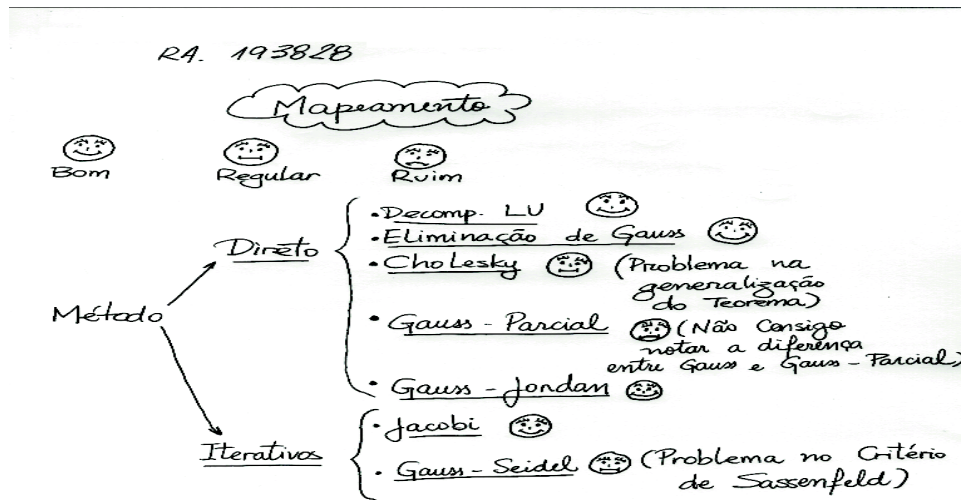 RA. 193828
Mapeamento
Bom Regular Ruim
• Decomp. LU
• Eliminação de Gauss
Direto
• ChoLesky (Problema na
generalização
do Teorema)
Método
• Gauss - Parcial (Não Consigo
notar a diferença
entre Gauss e Gauss - Parcial)
• Gauss - Jordan
• Jacobi
Iterativos
• Gauss - Seidel (Problema no Critério
de Sassenfeld)